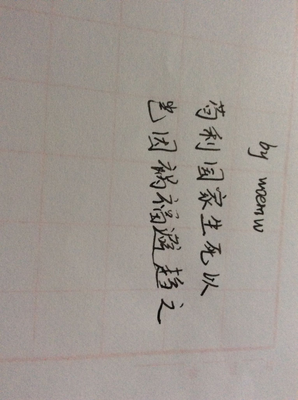 by
苟利国家生死以
岂因祸福避趋之